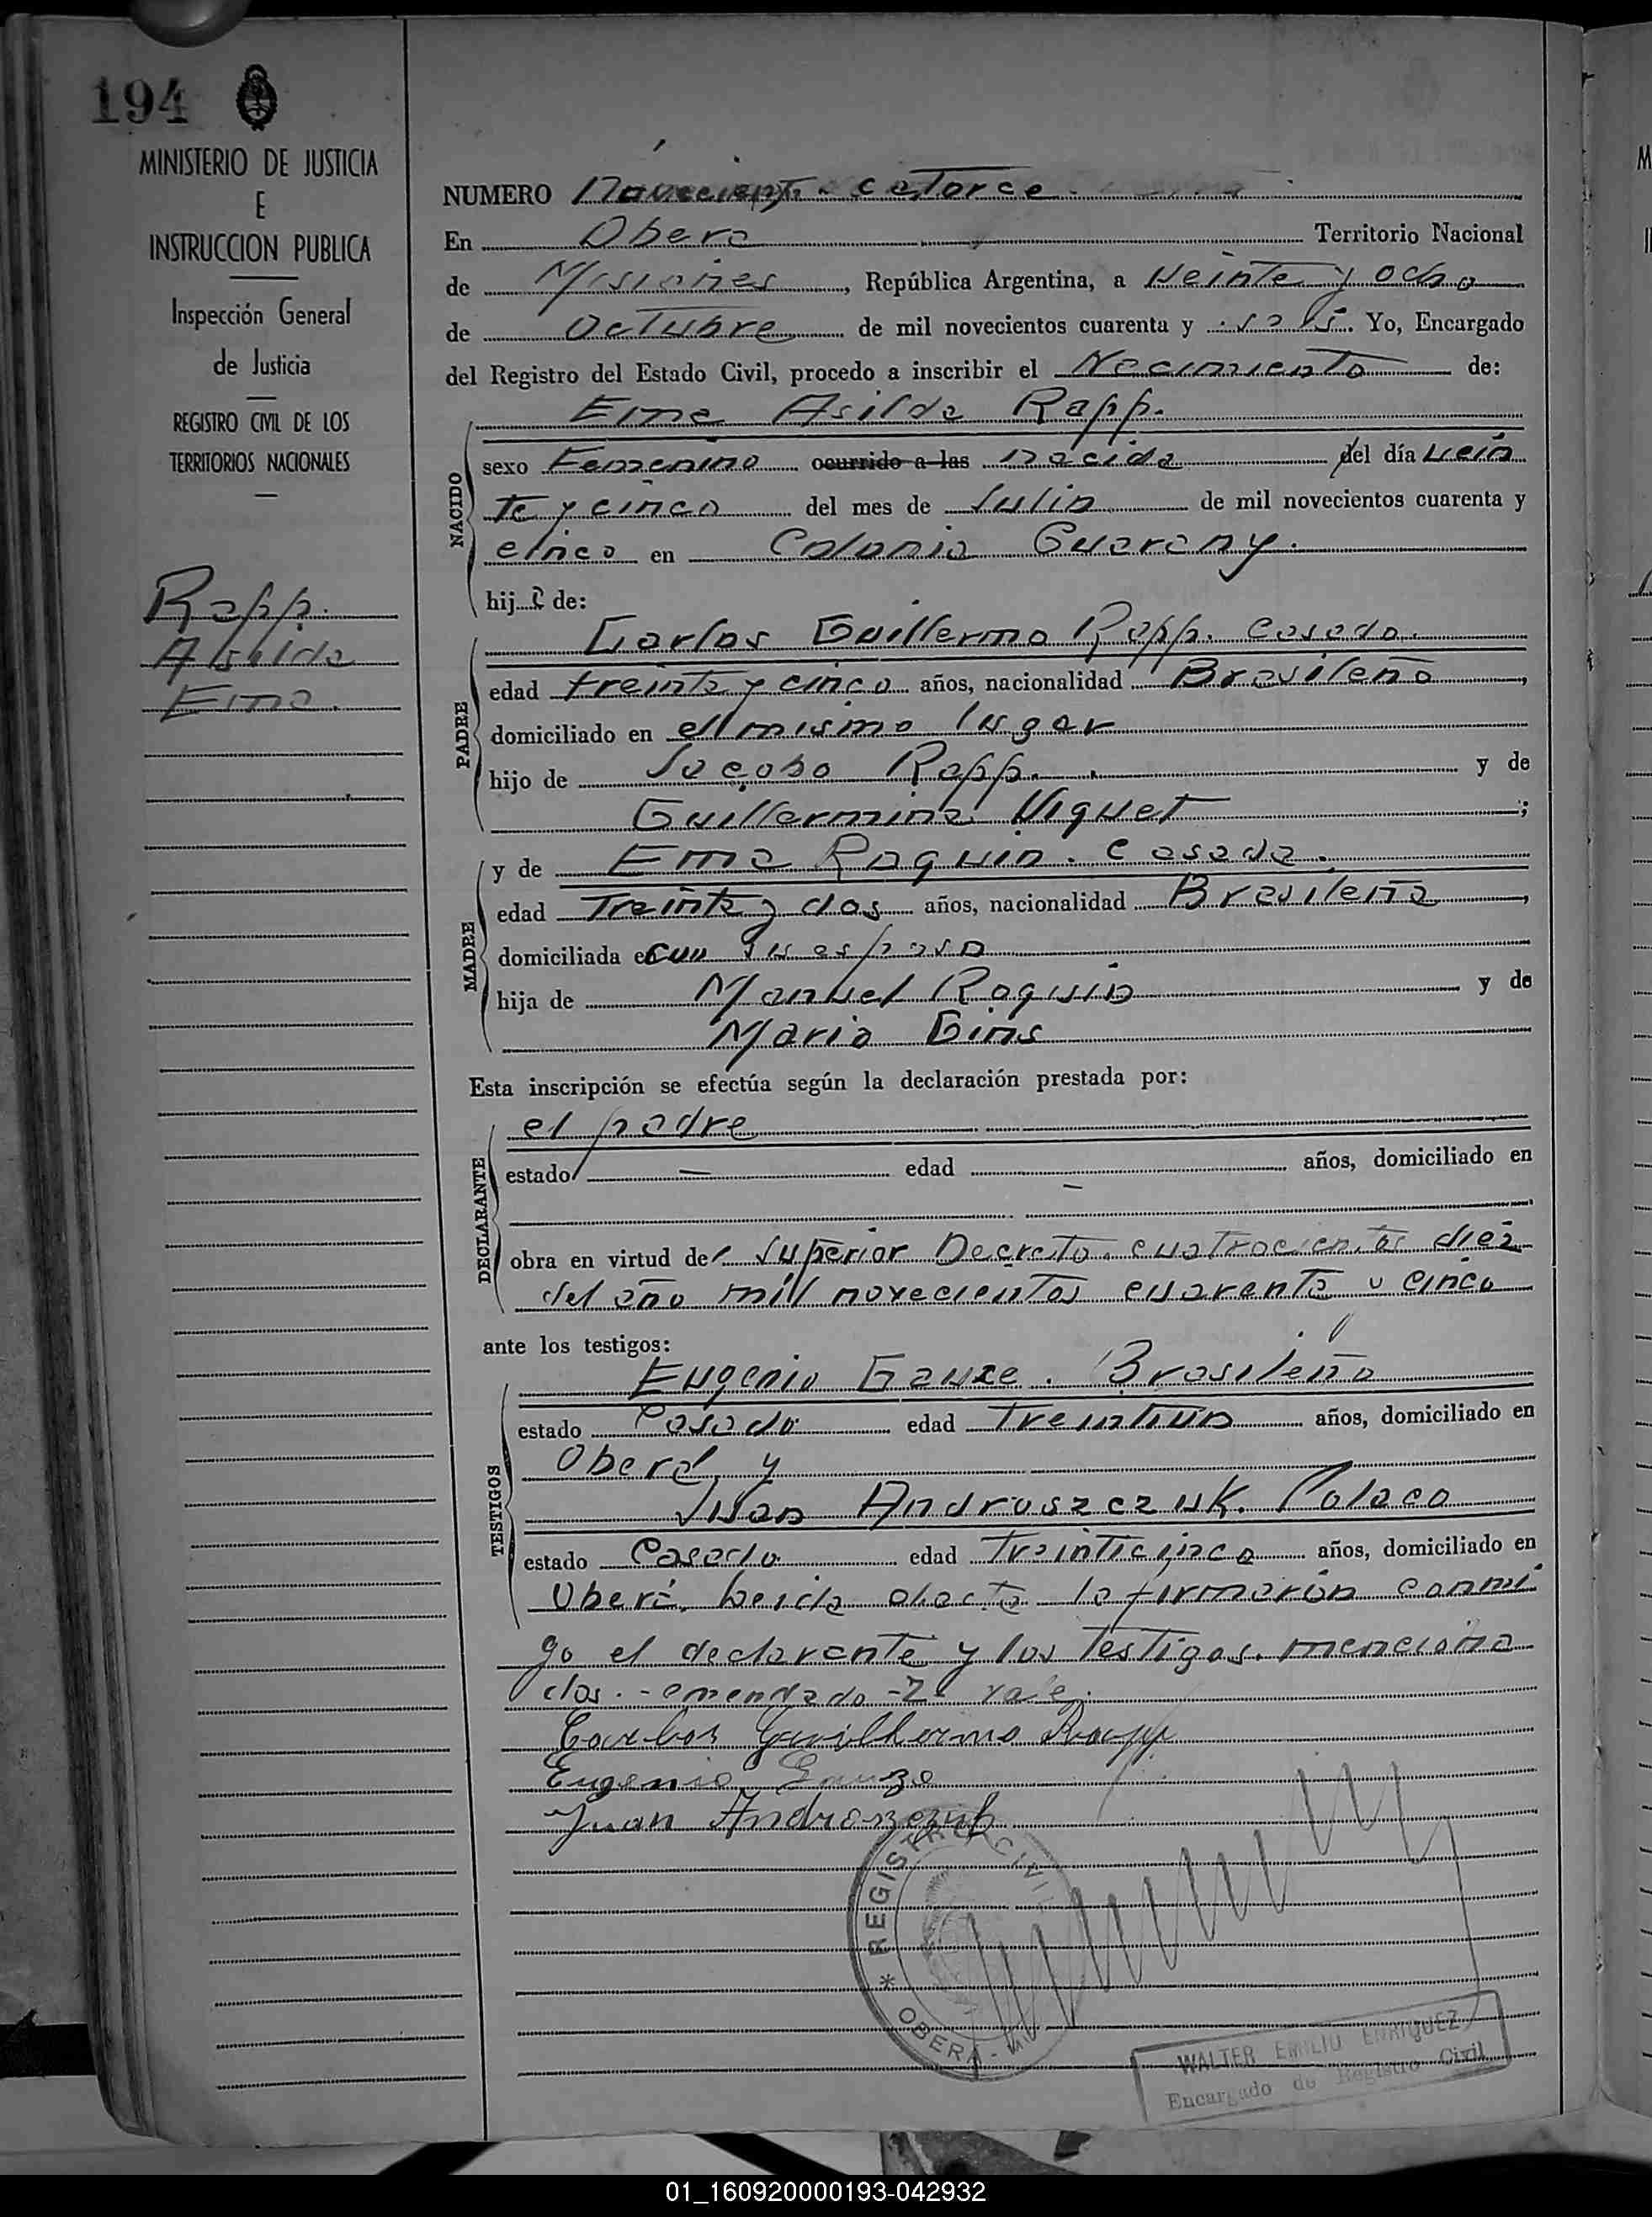 194
MINISTERIO DE JUSTICIA
E
INSTRUCCION PUBLICA
Inspección General
de Justicia
REGISTRO CIVIL DE LOS
TERRITORIOS NACIONALES
Rapp.
Asilda
Ema.
NUMERO Novecientos catorce
En Oberá Territorio Nacional
de Misiones, República Argentina, a veinte y ocho
de Octubre de mil novecientos cuarenta y seis. Yo, Encargado
del Registro del Estado Civil, procedo a inscribir el Nacimiento de:
Ema Asilda Rapp.
NACIDO
sexo Femenino ocurrido a las nacida del día vein
te y cinco del mes de Julio de mil novecientos cuarenta y
cinco en Colonia Guarany.
hija de:
PADRE
Carlos Guillermo Rapp. casado.
edad treinta y cinco años, nacionalidad Brasileño,
domiciliado en el mismo lugar
hijo de Jacobo Rapp. y de
Guillermina Viguet;
MADRE
y de Ema Roquin. casada.
edad Treinta y dos años, nacionalidad Brasileña,
domiciliada con su esposo
hija de Manuel Roquin y de
Maria Gins
Esta inscripción se efectúa según la declaración prestada por:
DECLARANTE
el padre
estado — edad — años, domiciliado en
obra en virtud del Superior Decreto cuatrocientos diez
del año mil novecientos cuarenta y cinco
ante los testigos:
TESTIGOS
Eugenio Gauze. Brasileño
estado Casado edad Treintiun años, domiciliado en
Oberá y
Juan Androszczuk. Polaco
estado Casado edad Treinticinco años, domiciliado en
Oberá. leida el acta la firmarón conmi
go el declarante y los Testigos menciona
dos. - emendado - vale.
Carlos Guilhermo Rapp
Eugenio Gauze
Juan Androszczuk
* REGISTRO CIVIL
OBERA -
WALTER EMILIO ENRIQUEZ
Encargado de Registro Civil
01_160920000193-042932